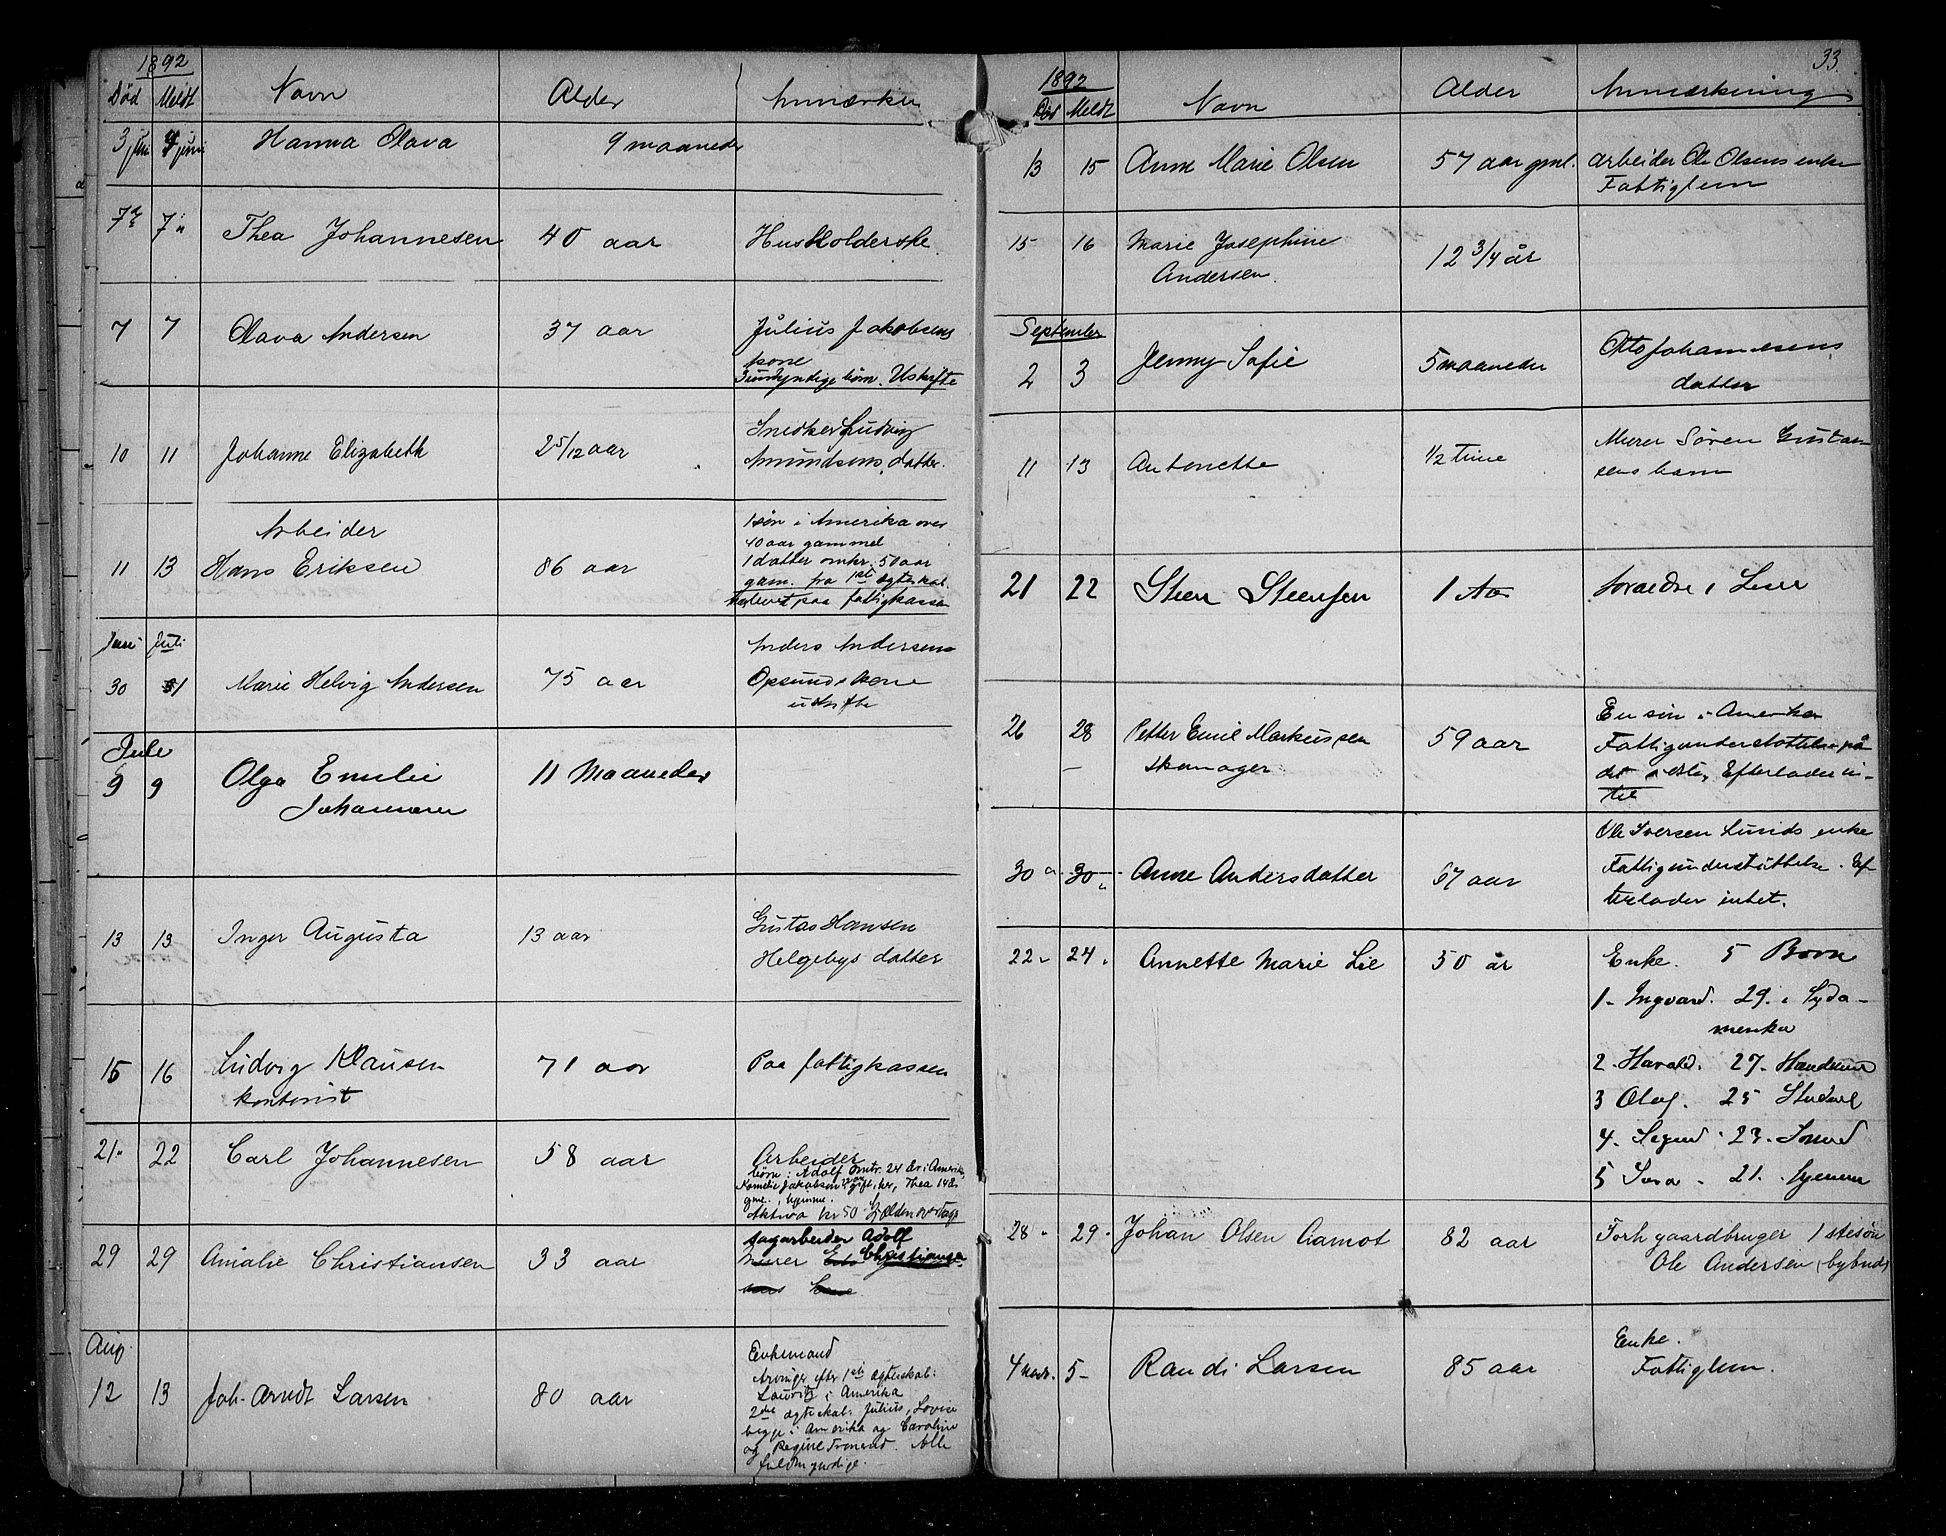 1892
Død Meldt Navn Alder Anmærkn
3 juni 4 juni Hanna Olava 9 maaneder
7de 7 " Thea Johannesen 40 aar Husholderske
7 7 Olava Andersen 37 aar Julius Jakobsens
kone
3 umyndige børn. Uskifte
10 11 Johanne Elizabeth 2 5/12 aar Snedker Ludvig
Amundsens datter.
Arbeider
11 13 Hans Eriksen 86 aar 1 søn i Amerika over
40 aar gammel
1 datter omkr. 50 aar
gam. fra 1ste ægteskab.
paa fattigkassen
Juni Juli
30 1 Marie Helvig Andersen 75 aar Anders Andersens
Opsund kone
uskifte
Jule
9 9 Olga Emilie 11 Maaneder
Johannesen
13 13 Inger Augusta 13 aar Gustav Hansen
Helgebys datter
15 16 Ludvig Klausen 71 aar Paa fattigkassen
kontorist
21 " 22 Carl Johannesen 58 aar Arbeider
børn: Adolf omtr. 24 år i Amerika,
Jakobsen gift, her, Thea 14 år
gml. hjemme.
Aktiva kr 50
29 29 Amalie Christiansen 33 aar Sagarbeider Adolf
Murer Christianse
Aug.
12 13 Joh. Arndt Larsen 80 aar Enkemand
Arvinger efter 1ste ægteskab:
Lauritz i Amerika
2det ægteskab: Julius, Lovise
begge i Amerika og Caroline
og Regine Tronsrud. Alle
fuldmyndige.
33.
1892
Død Meldt Navn Alder Anmærkning
13 15 Anne Marie Olsen 57 aar gml. arbeider Ole Olsens enke
Fattiglem
15 16 Marie Josephine
Andersen. 12 3/4 år
September
2 3 Jenny Sofie 5 maaneder Otto Johannesens
datter
11 13 Antonette 1/2 time Murer Søren Gustav
sens barn
21 22 Steen Steensen 1 Aar foraldre i Live
26 28 Petter Emil Markussen 59 aar En søn i Amerika
Skomager Fattigunderstøttelse på
det Efterlader in-
tet
30 " 30 " Anne Andersdatter 67 aar Ole Iversen Lunds enke
Fattigunderstøttelse. Ef
terlader intet.
22 " 24 " Annette Marie Lie 50 år Enke. 5 Børn
1 - Ingvard. 29. i Syda-
merika
2 - Harald. 27 -
3 Olaf. 25 Student
4. Sigurd 23 -
5 21. hjemme
28 " 29 " Johan Olsen Aamot 82 aar Forh gaardbruger 1 stesøn
Ole Andersen (bybud)
4 Novb. 5 - Randi Larsen 85 aar Enke.
Fattiglem.